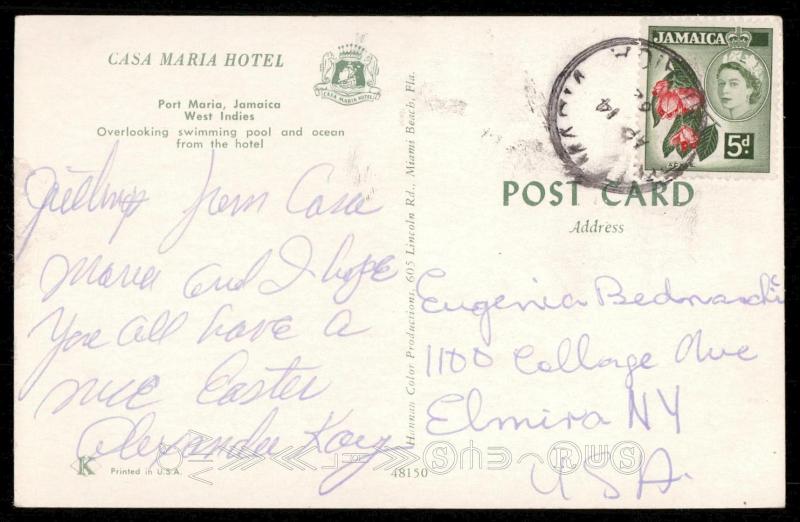 CASA MARIA HOTEL
CASA MARIA HOTEL
Port Maria, Jamaica
West Indies
Overlooking swimming pool and ocean
from the hotel
from Casa
Maria and I hope
You all have a
nice Easter
Alexandra
K
Printed in U.S.A.
Hannau Color Productions, 605 Lincoln Rd., Miami Beach, Fla.
48150
JAMAICA
5d.
ACKEE
POST CARD
Address
Eugenia
1100 Collage Ave
Elmira NY
USA.